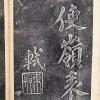 使嶺表
軾